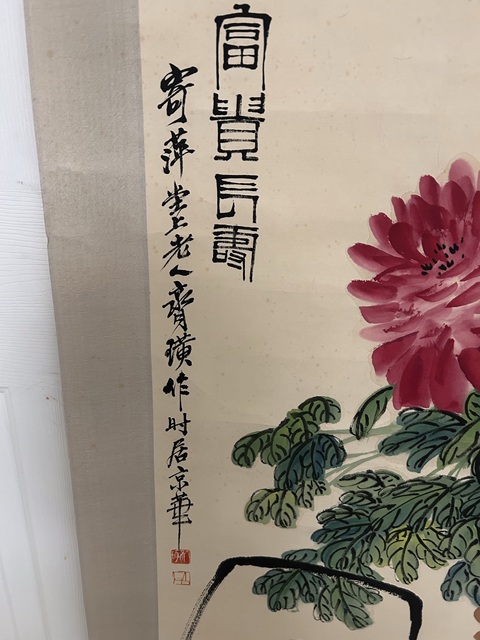 富貴長壽
寄萍堂上老人齊璜作時居京華